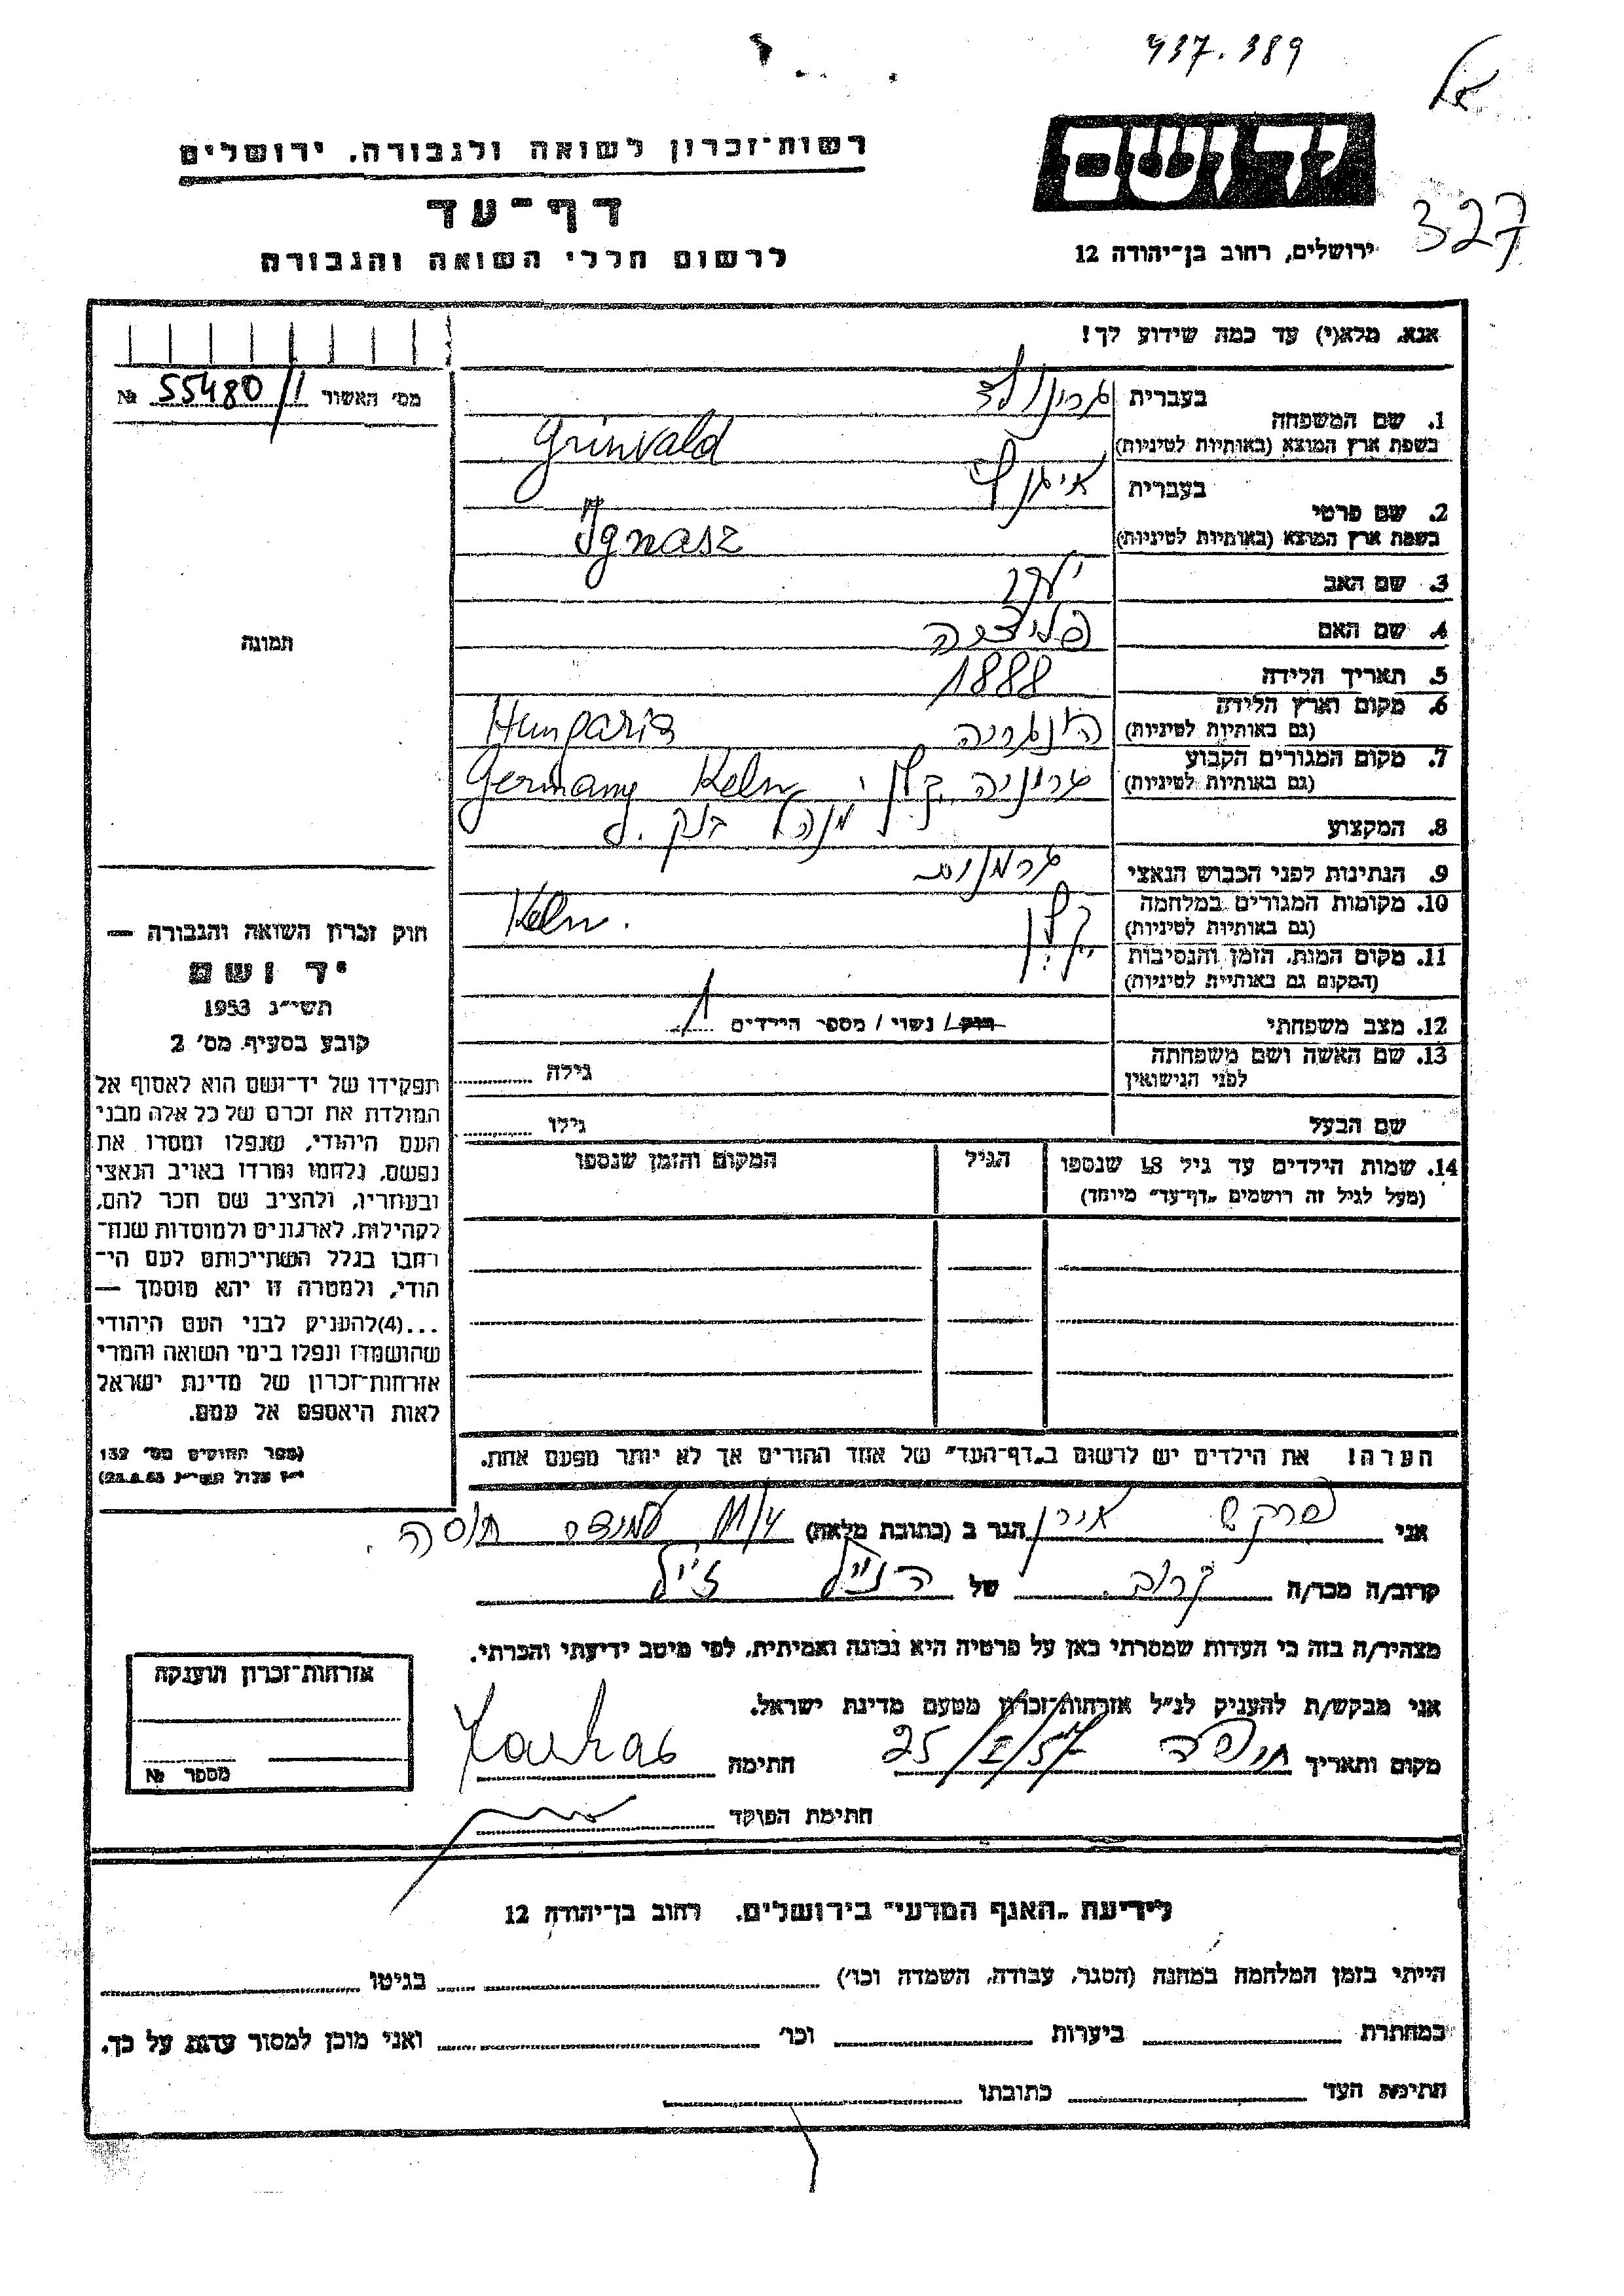 437.389
יד ושם
327
ירושלים, רחוב בן־יהודה 12
רשות־זכרון לשואה ולגבורה, ירושלים
דף־עד
לרשום חללי השואה והגבורה
אנא, מלא(י) עד כמה שידוע לך!
מס׳ האשור 55480/1 №
1. שם המשפחה
בעברית גרינולד
בשפת ארץ המוצא (באותיות לטיניות) Grinvald
2. שם פרטי
בעברית
בשפת ארץ המוצא (באותיות לטיניות) Ignasz
3. שם האב
4. שם האם
5. תאריך הלידה 1888
6. מקום וארץ הלידה הונגריה Hungaria
(גם באותיות לטיניות)
7. מקום המגורים הקבוע קלן Germany Keln
(גם באותיות לטיניות)
8. המקצוע מנהל בנק
9. הנתינות לפני הכבוש הנאצי גרמנית
10. מקומות המגורים במלחמה קלן Keln.
(גם באותיות לטיניות)
11. מקום המות, הזמן והנסיבות
(המקום גם באותיות לטיניות)
12. מצב משפחתי רווק / נשוי / מספר הילדים 1
13. שם האשה ושם משפחתה
לפני הנישואין גילה
שם הבעל גילו
14. שמות הילדים עד גיל 18 שנספו הגיל המקום והזמן שנספו
(מעל לגיל זה רושמים „דף־עד״ מיוחד)
הערה! את הילדים יש לרשום ב„דף־העד״ של אחד ההורים אך לא יותר מפעם אחת.
תמונה
חוק זכרון השואה והגבורה —
יד ושם
תשי״ג 1953
קובע בסעיף מס׳ 2
תפקידו של יד־ושם הוא לאסוף אל
המולדת את זכרם של כל אלה מבני
העם היהודי, שנפלו ומסרו את
נפשם, נלחמו ומרדו באויב הנאצי
ובעוזריו, ולהציב שם וזכר להם,
לקהילות, לארגונים ולמוסדות שנח־
רבו בגלל השתייכותם לעם הי־
הודי, ולמטרה זו יהא מוסמך —
...(4)להעניק לבני העם היהודי
שהושמדו ונפלו בימי השואה והמרי
אזרחות־זכרון של מדינת ישראל
לאות היאספם אל עמם.
(ספר החוקים מס׳ 132
י״ז אלול תשי״ג 28.8.53)
אני פרקש אירן הגר ב (כתובת מלאה)
קרוב/ה מכר/ה קרוב של הנ״ל ז״ל
מצהיר/ה בזה כי העדות שמסרתי כאן על פרטיה היא נכונה ואמיתית, לפי מיטב ידיעתי והכרתי.
אני מבקש/ת להעניק לנ״ל אזרחות־זכרון מטעם מדינת ישראל.
מקום ותאריך 25/I/57 חתימה Farkas
חתימת הפוקד
אזרחות־זכרון הוענקה
מספר №
לידיעת „האגף המדעי״ בירושלים, רחוב בן־יהודה 12
הייתי בזמן המלחמה במחנה (הסגר, עבודה, השמדה וכו׳) בגיטו
במחתרת ביערות וכו׳ ואני מוכן למסור עדות על כך.
חתימת העד כתובתו